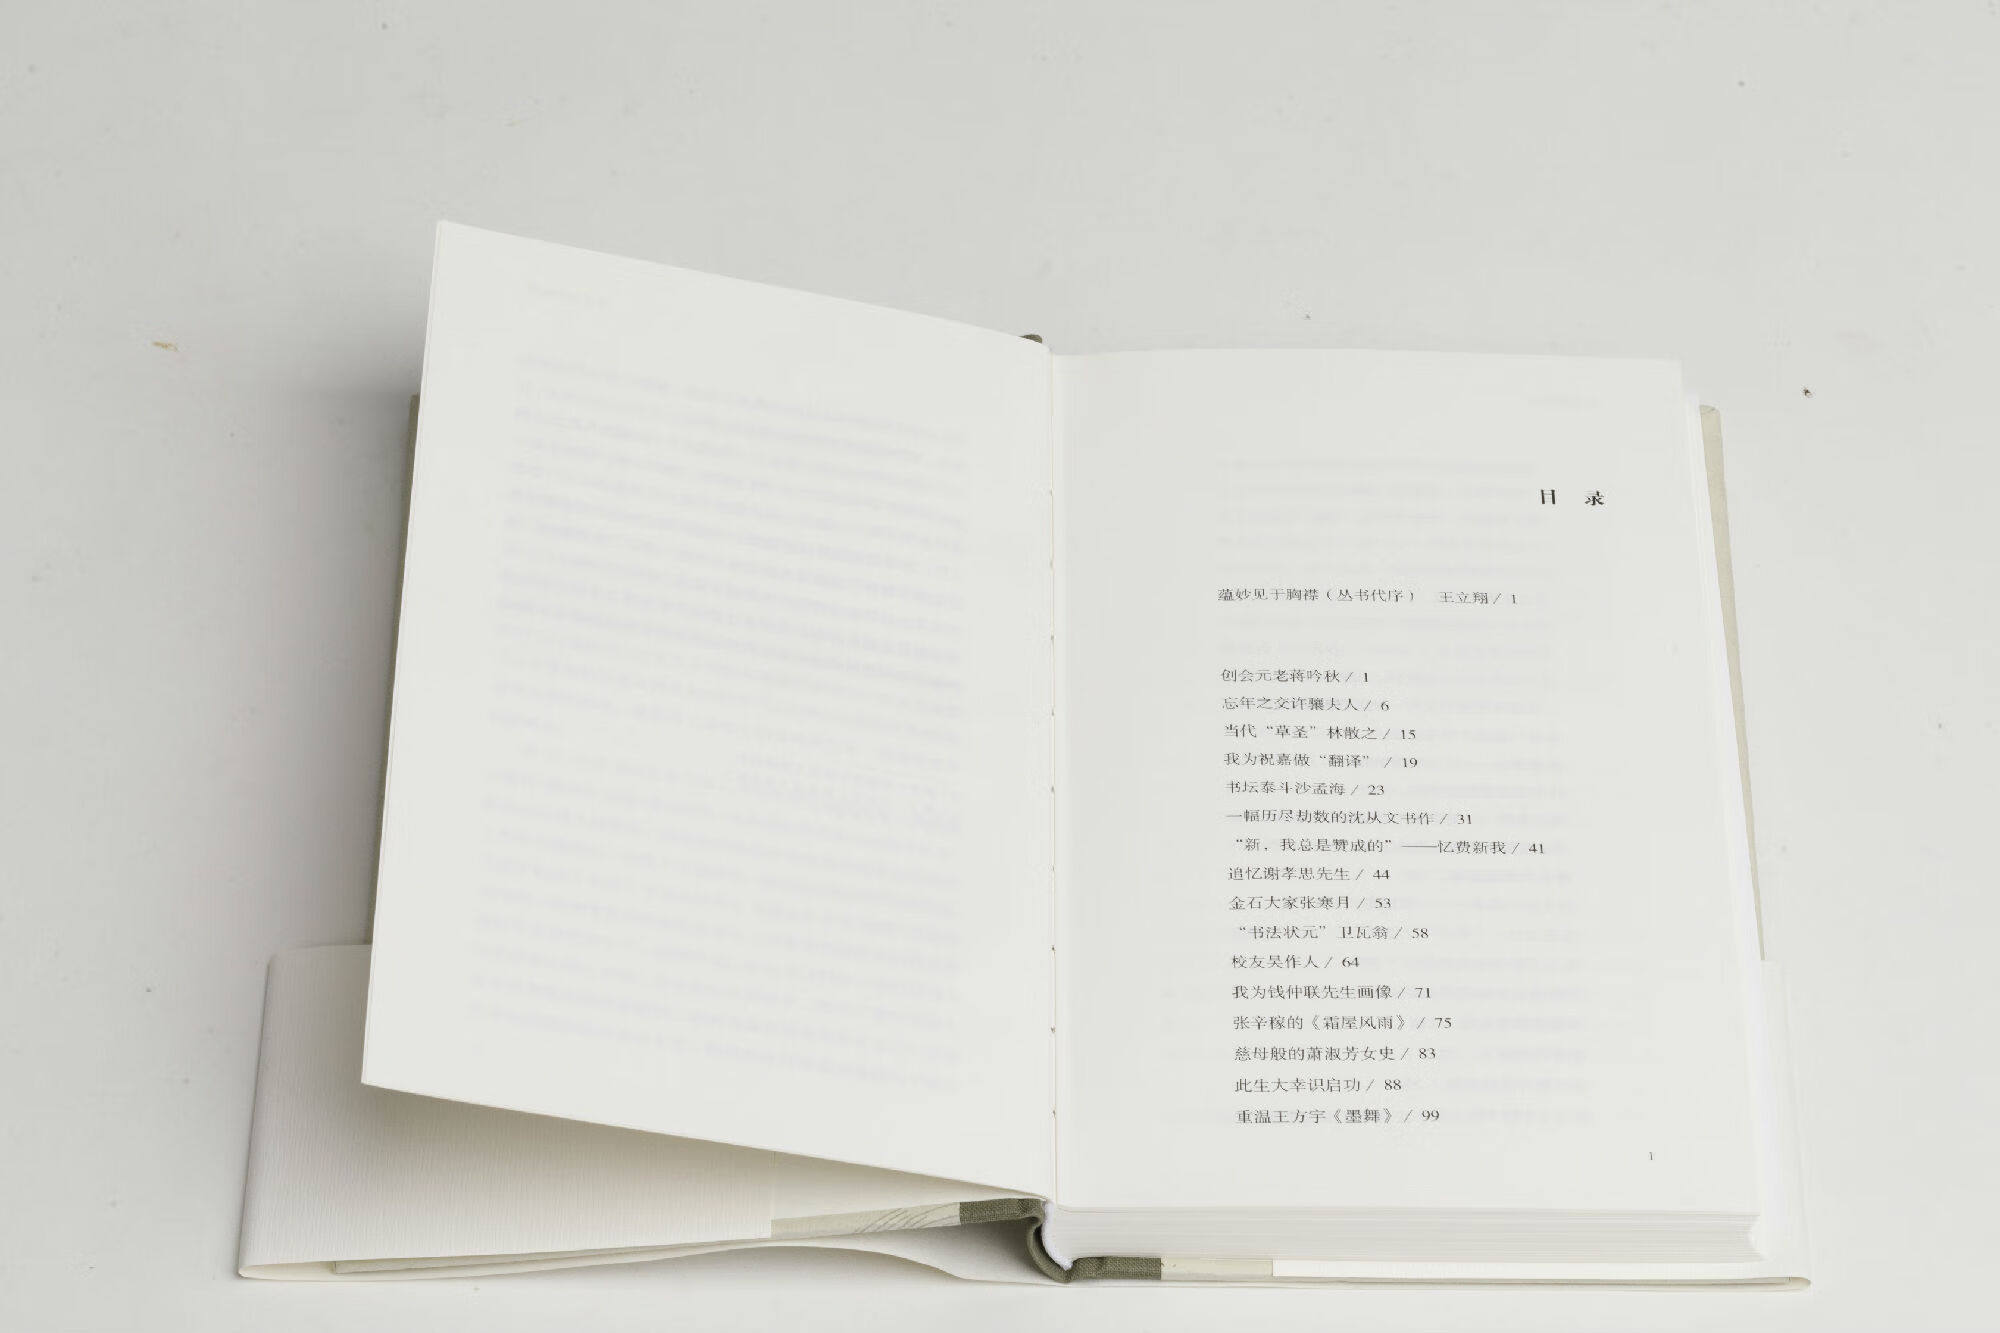 目 录
蕴妙见于胸襟（丛书代序） 王立翔 / 1
创会元老蒋吟秋 / 1
忘年之交许骧夫人 / 6
当代“草圣”林散之 / 15
我为祝嘉做“翻译” / 19
书坛泰斗沙孟海 / 23
一幅历尽劫数的沈从文书作 / 31
“新，我总是赞成的”——忆费新我 / 41
追忆谢孝思先生 / 44
金石大家张寒月 / 53
“书法状元”卫瓦翁 / 58
校友吴作人 / 64
我为钱仲联先生画像 / 71
张辛稼的《霜屋风雨》 / 75
慈母般的萧淑芳女史 / 83
此生大幸识启功 / 88
重温王方宇《墨舞》 / 99
1